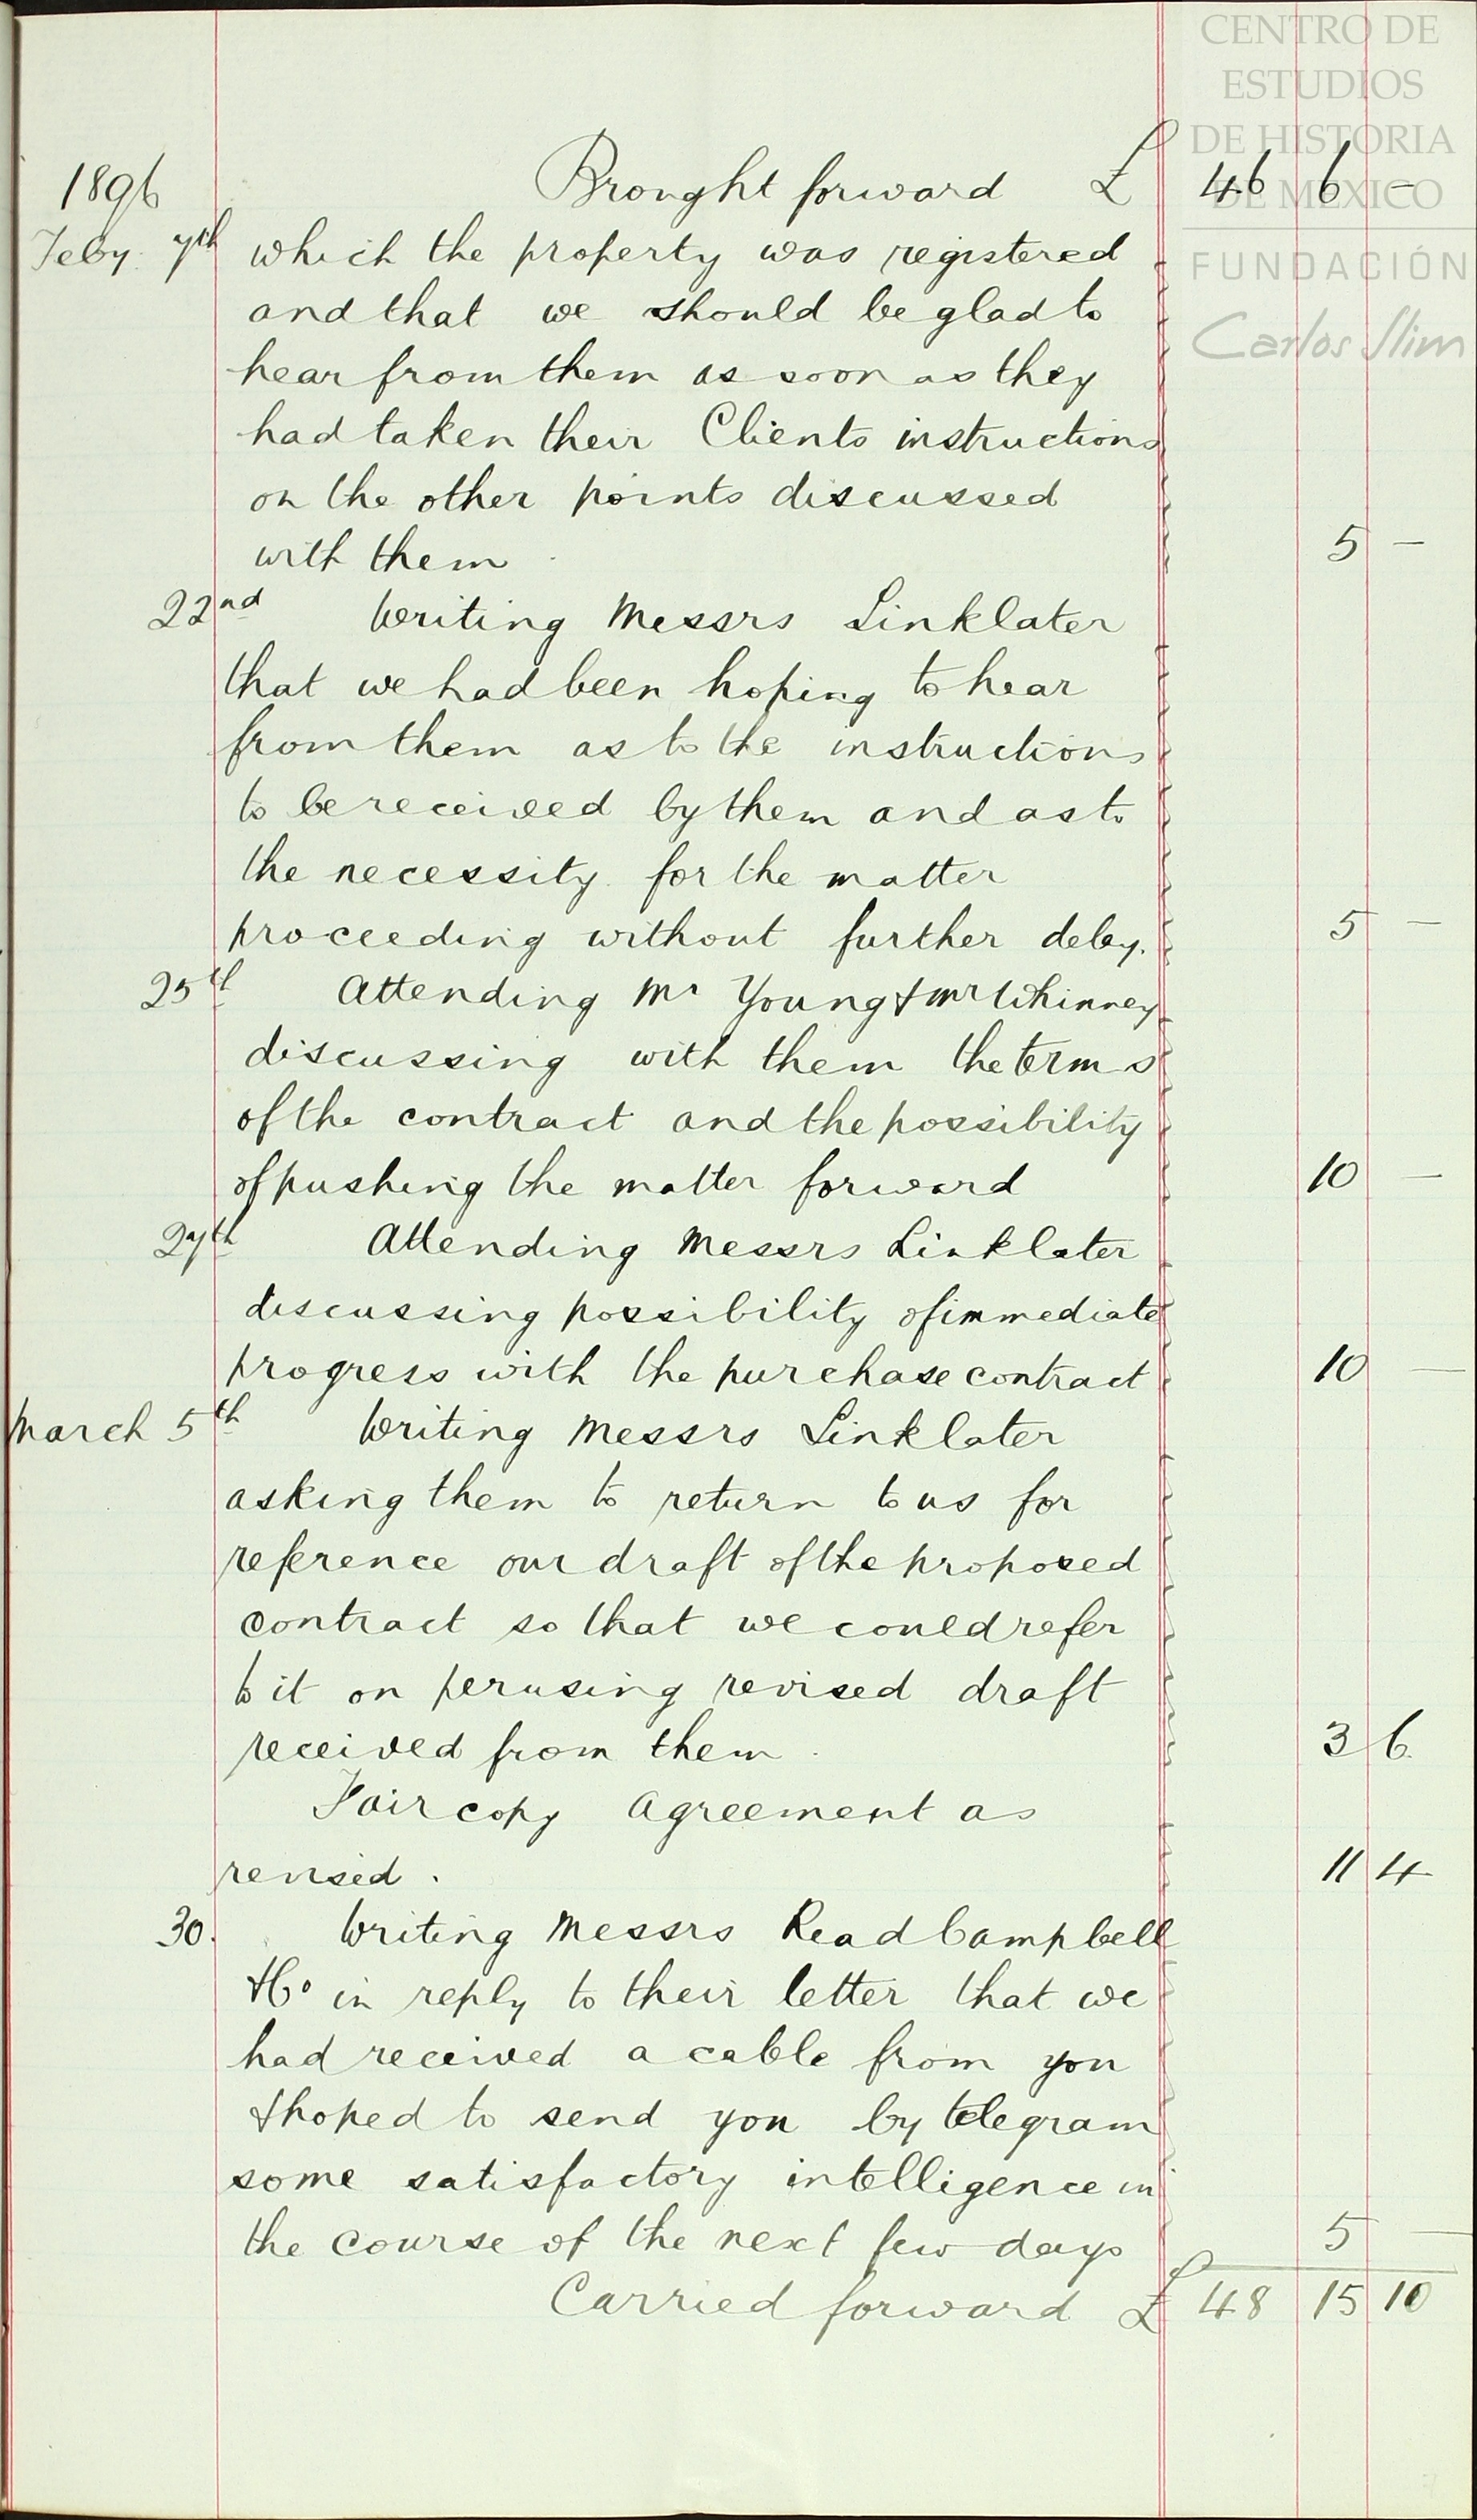 CENTRO DE
ESTUDIOS
DE HISTORIA
DE MEXICO
FUNDACIÓN
Carlos Slim
1896 Brought forward £ 46 6 -
Feby. 7th which the property was registered
and that we should be glad to
hear from them as soon as they
had taken their Clients instructions
on the other points discussed
with them 5 -
22nd Writing Messrs Linklater
that we had been hoping to hear
from them as to the instructions
to be received by them and as to
the necessity for the matter
proceeding without further delay. 5 -
25th Attending Mr Young & Mr Whinney
discussing with them the terms
of the contract and the possibility
of pushing the matter forward 10 -
27th Attending Messrs Linklater
discussing possibility of immediate
progress with the purchase contract 10 -
March 5th Writing Messrs Linklater
asking them to return to us for
reference our draft of the proposed
contract so that we could refer
to it on perusing revised draft
received from them. 3 6
Fair copy Agreement as
revised. 11 4
30. Writing Messrs Read Campbell
& Co in reply to their letter that we
had received a cable from you
& hoped to send you by telegram
some satisfactory intelligence in
the course of the next few days 5 -
Carried forward £ 48 15 10